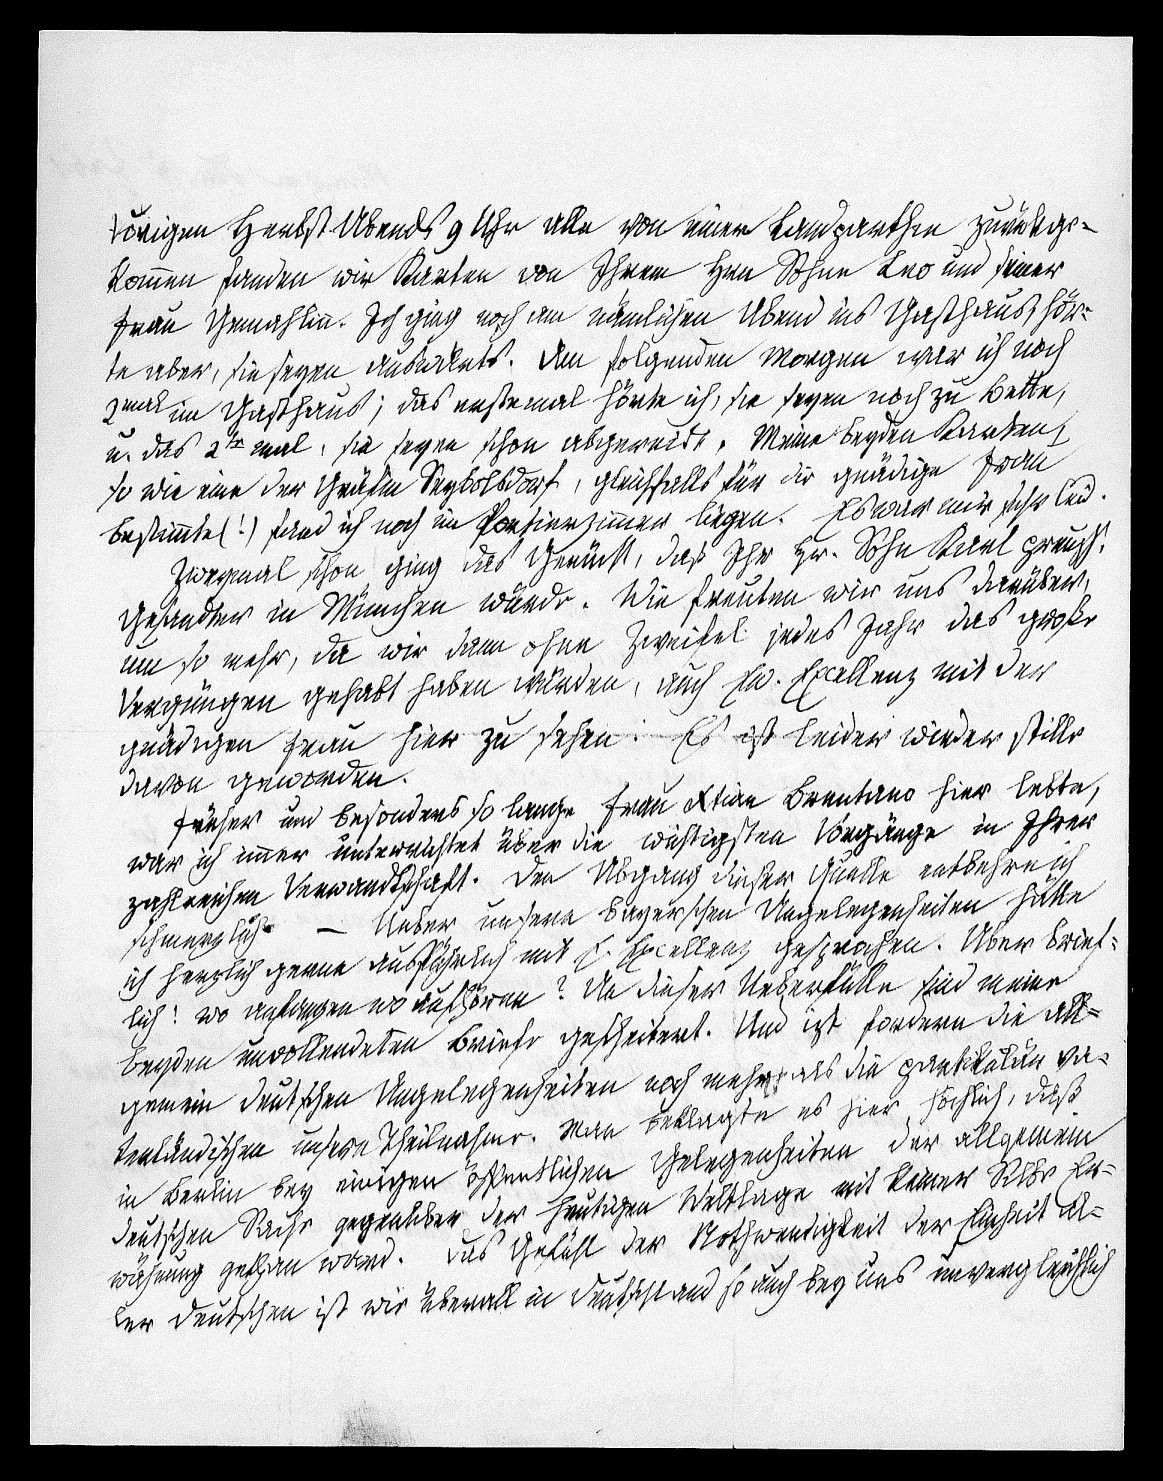 vorigen Herbst Abends 9 Uhr alle von einer Landparthie zurückge-
kom̅en fanden wir Karten von Ihrem Hrn Sohne Leo und seiner
Frau Gemahlin. Ich ging noch am nämlichen Abend ins Gasthaus, hör-
te aber, sie seyen auswärts. Am folgenden Morgen war ich noch
2mal im Gasthaus; das erstemal hörte ich, sie seyen noch zu Bette,
u. das 2te mal, sie seyen schon abgereist. Meine beyden Karten,
so wie eine der Gräfin Seyboltsdorf, gleichfalls für die gnädige Frau
bestim̅te (!) fand ich noch im Portierzim̅er liegen. Es war mir sehr leid.
Zweymal schon ging das Gerücht, daß Ihr Hr. Sohn Karl preuß.
Gesandter in München würde. Wie freuten wir uns darüber,
um so mehr, da wir dann ohne Zweifel jedes Jahr das große
Vergnügen gehabt haben würden, auch Ew. Excellenz mit der
gnädigen Frau hier zu sehen. Es ist leider wieder stille
davon geworden.
Früher und besonders so lange Frau Xtian Brentano hier lebte,
war ich im̅er unterrichtet über die wichtigsten Vorgänge in Ihrer
zahlreichen Verwandtschaft. Den Abgang dieser Quelle entbehre ich
schmerzlich. — Ueber unsere bayerschen Angelegenheiten hätte
ich herzlich gerne ausführlich mit E. Excellenz gesprochen. Aber brief-
lich! wo anfangen wo aufhören? An dieser Ueberfülle sind meine
beyden unvollendeten Briefe gescheitert. Und izt fordern die all-
gemein deutschen Angelegenheiten noch mehr als die partikulär va-
terländischen unsere Theilnahme. Man beklagte es hier höchlich, daß
in Berlin bey einigen öffentlichen Gelegenheiten der allgemein
deutschen Sache gegenüber der heutigen Weltlage mit keiner Silbe Er-
wähnung gethan ward. Das Gefühl der Nothwendigkeit der Einheit al-
ler Deutschen ist wie überall in Deutschland so auch bey uns unvergleichlich